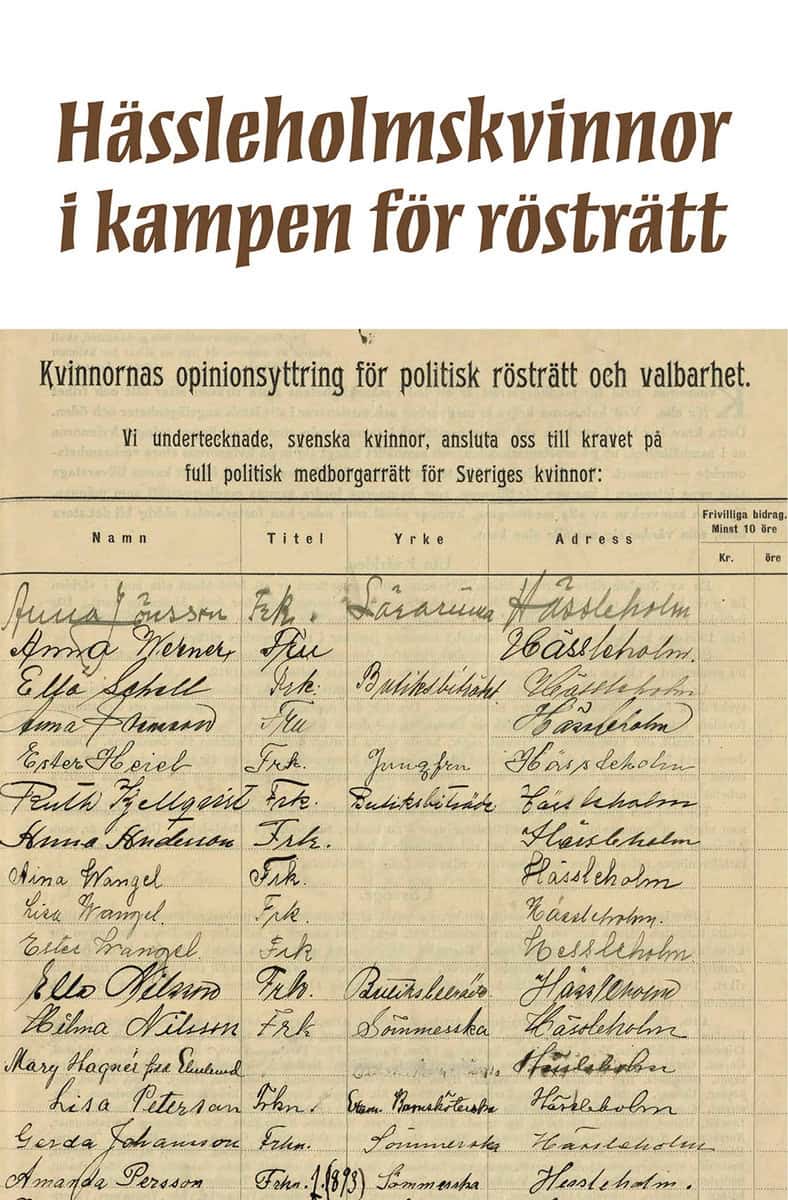 Hässleholmskvinnor
i kampen för rösträtt
Kvinnornas opinionsyttring för politisk rösträtt och valbarhet.
Vi undertecknade, svenska kvinnor, ansluta oss till kravet på
full politisk medborgarrätt för Sveriges kvinnor:
Namn Titel Yrke Adress Frivilliga bidrag. Minst 10 öre
Kr. öre
Anna Jönsson Frk. Lärarinna Hässleholm
Anna Werner Fru Hässleholm.
Ella Schell Frk. Butiksbiträde Hässleholm
Anna Fru Hässleholm
Ester Heidl Frk. Jungfru Hässleholm
Ruth Kjellqvist Frk. Butiksbiträde Hässleholm
Anna Andersson Frk. Hässleholm
Aina Wangel Frk. Hässleholm
Lisa Wangel. Frk. Hässleholm.
Ester Wangel. Frk Hessleholm
Ella Nilsson Frk. Butiksbiträde. Hässleholm
Hilma Nilsson Frk Sömmerska Hässleholm
Mary Hagnér född Hässleholm
Lisa Peterson Frkn. Exam. Barnsköterska Hässleholm
Gerda Johansson Frkn. Sömmerska Hässleholm
Amanda Persson Frkn. f. (893) Sömmerska Hessleholm.